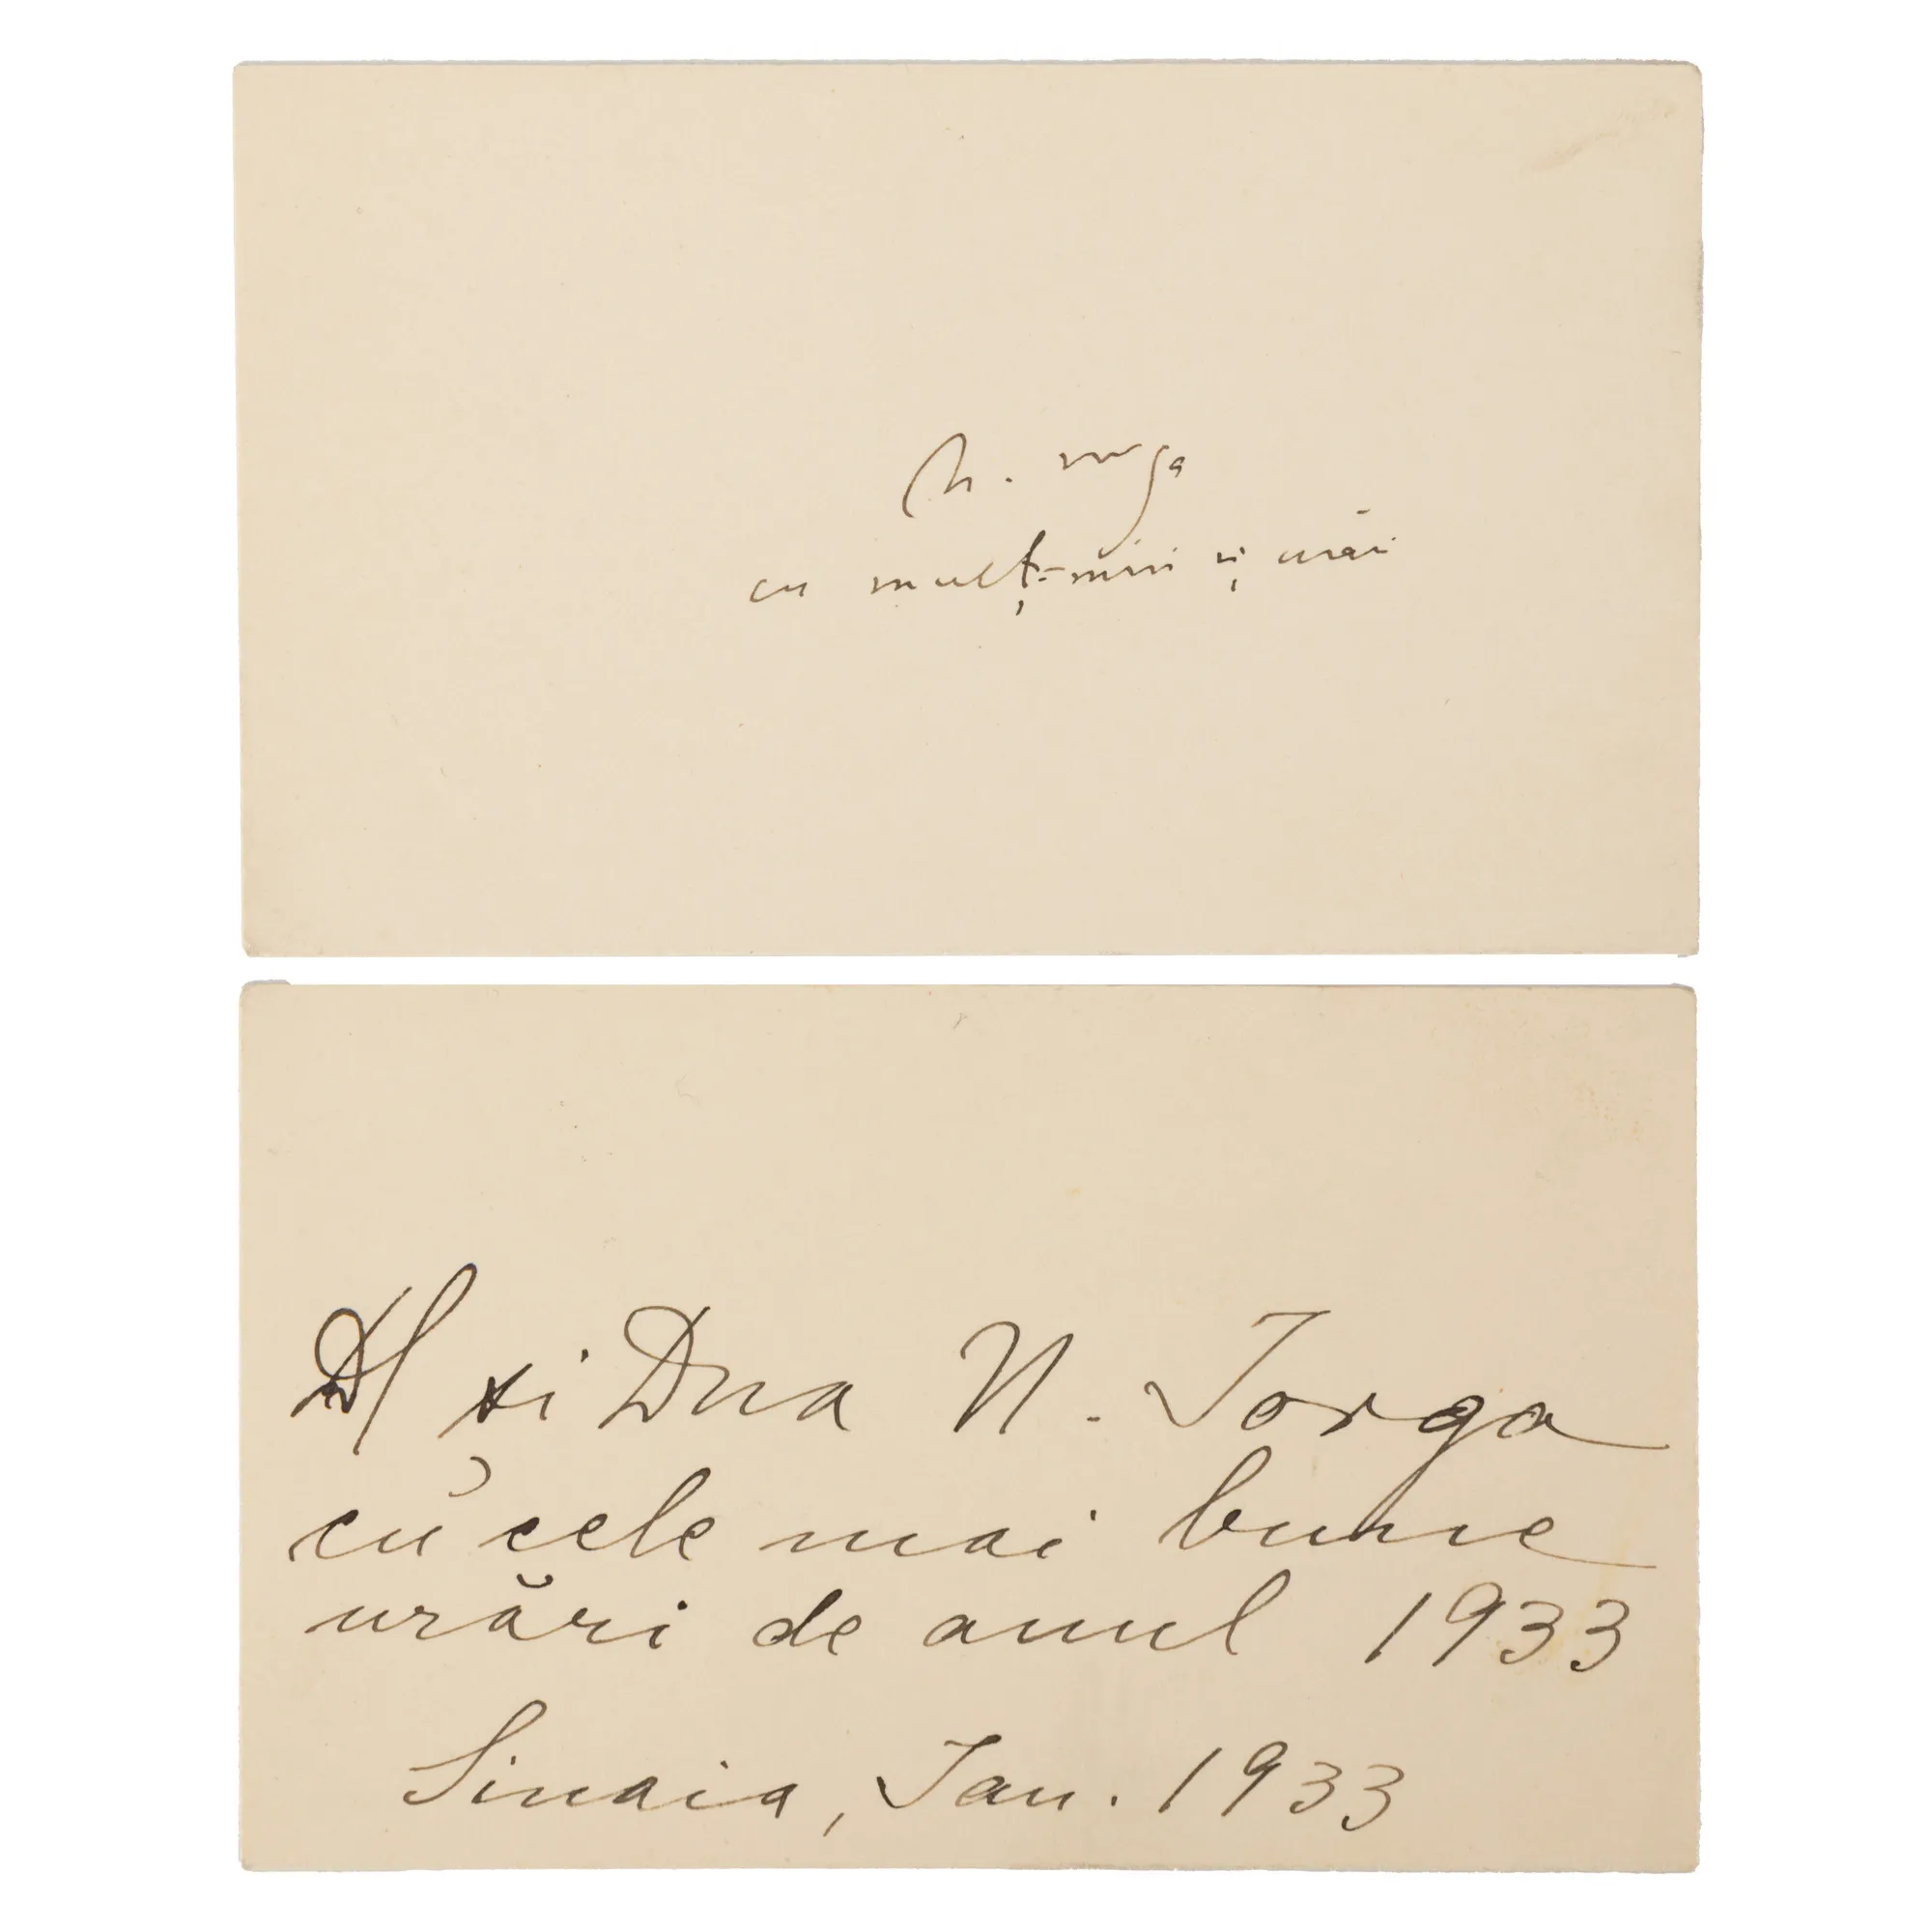 N. Iorga
cu mulțămiri și urări
Dl și Dna N. Iorga
cu cele mai bune
urări de anul 1933
Sinaia, Ian. 1933